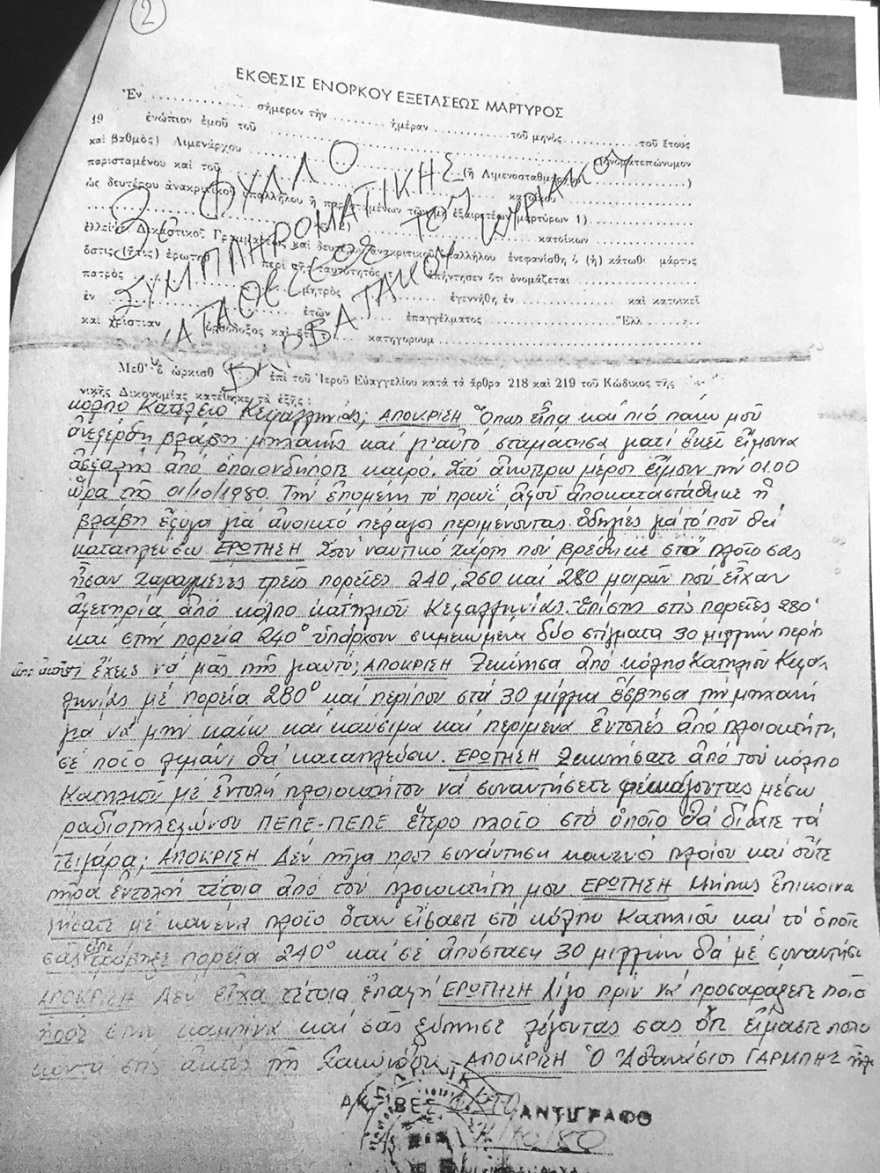 2
ΕΚΘΕΣΙΣ ΕΝΟΡΚΟΥ ΕΞΕΤΑΣΕΩΣ ΜΑΡΤΥΡΟΣ
Ἐν σήμερον τὴν ἡμέραν τοῦ μηνὸς τοῦ ἔτους
19 ἐνώπιον ἐμοῦ τοῦ
καὶ βαθμὸς) Λιμενάρχου (ἢ Λιμενοσταθμάρχου)
παρισταμένου καὶ τοῦ
ὡς δευτέρου ἀνακριτικοῦ ὑπαλλήλου ἢ τῶν μὴ ἐξαιρετέων μαρτύρων 1)
κατοίκων
ἐλλείψει Δικαστικοῦ Γραμματέως καὶ δευτέρου ἀνακριτικοῦ ὑπαλλήλου ἐνεφανίσθη ὁ (ἡ) κάτωθι μάρτυς
ὅστις (ἥτις) ἐρωτηθ περὶ τῆς ταυτότητός τ ἀπήντησεν ὅτι ὀνομάζεται
πατρὸς μητρὸς ἐγεννήθη ἐν καὶ κατοικεῖ
ἐν ἐτῶν ἐπαγγέλματος Ἕλλ
καὶ χριστιαν ὀρθόδοξος καὶ κατηγορουμ
2ο ΦΥΛΛΟ
ΣΥΜΠΛΗΡΟΜΑΤΙΚΗΣ
ΚΑΤΑΘΕΣΕΩΣ ΤΟΥ
Μεθ' ὃ ὡρκισθ ἐπὶ τοῦ Ἱεροῦ Εὐαγγελίου κατὰ τὰ ἄρθρα 218 καὶ 219 τοῦ Κώδικος τῆς
νικῆς Δικονομίας κατέθηκε τὰ ἑξῆς :
κόλπο Κατελειο Κεφαλληνίας; ΑΠΟΚΡΙΣΗ Ὅπως εἶπα και πιό πάνω μου
ἀνεφέρθη βλάβη μηχανῆς και γι' αὐτό σταμάτησα γιατί ἐκεῖ εἴμουνα
ἀσφαλής ἀπό ὁποιονδήποτε καιρό. Στό ἀνωτέρω μέρος εἴμουν τήν 01.00
ὥρα τῆς 01/10/1980. Τήν ἑπομένη τό πρωί ἀφοῦ ἀποκαταστάθηκε ἡ
βλάβη ἔφυγα γιά ἀνοικτό πέλαγος περιμένοντας ὁδηγίες γιά τό ποῦ θά
καταπλεύσω ΕΡΩΤΗΣΗ Στόν ναυτικό χάρτη πού βρέθηκε στό πλοῖο σας
ἦσαν χαραγμένες τρεῖς πορεῖες 240, 260 και 280 μοιρῶν πού εἶχαν
ἀφετηρία ἀπό κόλπο κατηλιοῦ Κεφαλληνίας. Ἐπίσης στίς πορεῖες 280°
και στήν πορεία 240° ὑπάρχουν σημειωμένα δύο στίγματα 30 μιλλίων περίπ
ἔχεις νά μᾶς πῆς γιαυτό; ΑΠΟΚΡΙΣΗ Ξεκίνησα ἀπό κόλπο Κατηλιοῦ Κεφαλ
ληνίας μέ πορεία 280° και περίπου στά 30 μίλλια ἔσβησα τήν μηχανή
γιά νά μήν καίω και καύσιμα και περίμενα ἐντολές ἀπό πλοιοκτήτη
σέ ποῖο λιμάνι θά καταπλεύσω. ΕΡΩΤΗΣΗ Ξεκινήσατε ἀπό τόν κόλπο
Κατηλιοῦ μέ ἐντολή πλοιοκτήτου νά συναντήσετε φωνάζοντας μέσω
ραδιοτηλεφώνου ΠΕΠΕ-ΠΕΠΕ ἕτερο πλοῖο στό ὁποῖο θά δίδατε τά
τσιγάρα; ΑΠΟΚΡΙΣΗ Δέν πῆγα πρός συνάντηση κανενός πλοίου και οὔτε
πῆρα ἐντολή τέτοια ἀπό τόν πλοιοκτήτη μου ΕΡΩΤΗΣΗ Μήπως ἐπικοινω
νήσατε μέ κανένα πλοῖο ὅταν εἴσαστε στό κόλπο Κατηλιοῦ και τό ὁποῖο
σᾶς εἶπε πορεία 240° και σέ ἀπόσταση 30 μιλλίων θά μέ συναντήσε
ΑΠΟΚΡΙΣΗ Δέν εἶχα τέτοια ἐπαφή ΕΡΩΤΗΣΗ Λίγο πρίν νά προσαράξετε ποιός
ἦρθε στήν καμπίνα και σᾶς ξύπνησε λέγοντας σας ὅτι εἴμαστε πολύ
κοντά στίς ἀκτές τῆς Ζακύνθου ΑΠΟΚΡΙΣΗ Ὁ Ἀθανάσιος ΓΑΡΜΠΗΣ
ΑΚΡΙΒΕΣ ΑΝΤΙΓΡΑΦΟ
/10/80